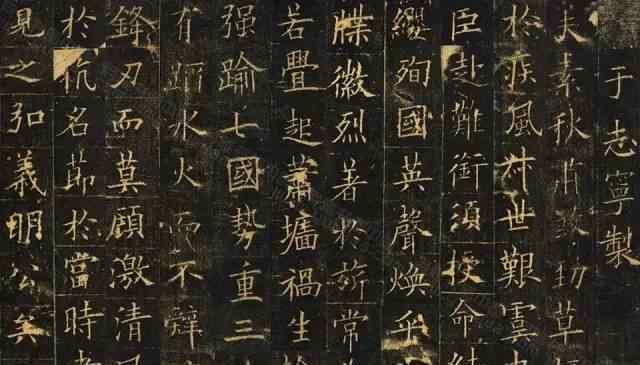 于志寧製
夫素秋肅煞勁草
於疾風叔世艱虞
臣赴難銜須授命
纓殉國英聲煥乎
牒徽烈著於旂常
若亹起蕭墻禍生
强踰七國勢重三
有蹈水火而不辭
鋒刃而莫顧激清
於抗名節於當時
見之弘義明公矣